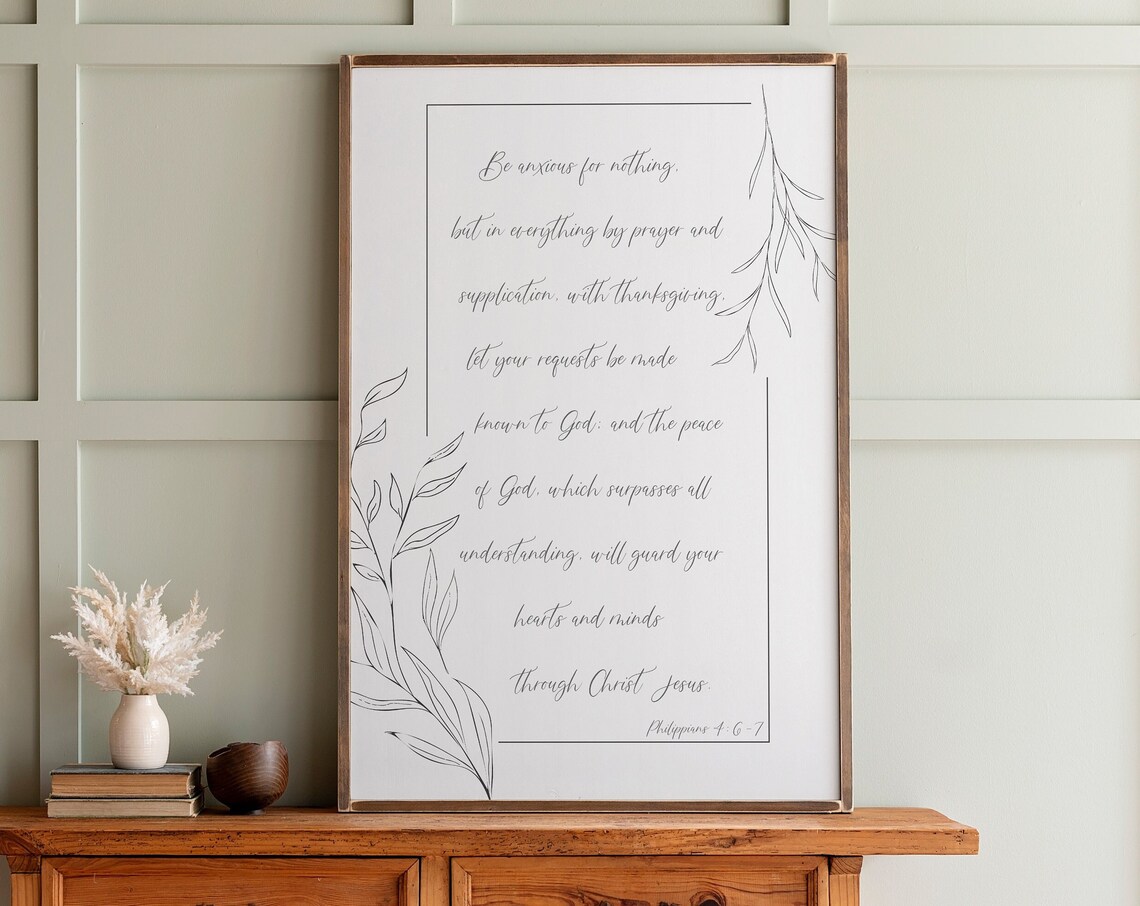 Be anxious for nothing,
but in everything by prayer and
supplication, with thanksgiving,
let your requests be made
known to God; and the peace
of God, which surpasses all
understanding, will guard your
hearts and minds
through Christ Jesus.
Philippians 4:6-7